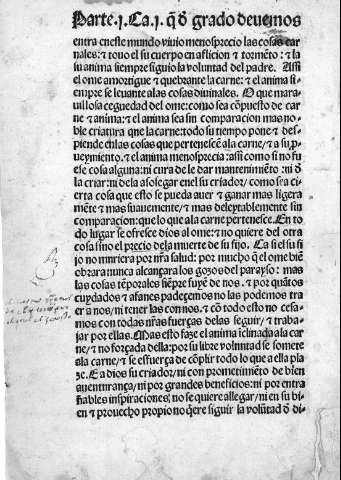 Parte.j.Ca.j. q̄ d̄ grado deuemos
entra eneste mundo viuio menosprecio las cosas car
nales: ⁊ touo el su cuerpo en afliciõ ⁊ tormẽto: ⁊ la
su anima siempre siguio la voluntad del padre. Assi
el ome amortigue ⁊ quebrante la carne: ⁊ el anima si-
empre se leuante alas cosas diuinales. O que mara-
uillosa ceguedad del ome: como sea cõpuesto de car
ne ⁊ anima: ⁊ el anima sea sin comparacion mas no-
ble criatura que la carne: todo su tiempo pone ⁊ des-
piende enlas cosas que pertenescẽ ala carne/ ⁊ a su p̱
ueymiento. ⁊ el anima menosprecia: assi como si no fu
ese cosa alguna: ni cura de le dar mantenimiẽto: ni ð
la criar: ni de la asolegar enel su criador/ como sea ci
erta cosa que esto se pueda auer ⁊ ganar mas ligera
mẽte ⁊ mas suauemente/ ⁊ mas deleytablemente sin
comparacion: que lo que ala carne pertenesce. En to
do lugar se ofresce dios al ome: ⁊ no quiere del otra
cosa sino el precio dela muerte de su fijo. Ca si el su fi
jo no muriera por nr̃a salud: por mucho q̃ el ome biẽ
obrara nunca alcançara los gozos del parayso: mas
las cosas tẽporales siẽpre fuyẽ de nos: ⁊ por quãtos
cuydados ⁊ afanes padeçemos no las podemos tra
er a nos/ ni tener las con nos. ⁊ cõ todo esto no cesa-
mos con todas nr̃as fuerças delas seguir/ ⁊ traba-
jar por ellas. Mas esto faze el anima ĩclinada ala car
ne/ ⁊ no forçada della: por su libre volũtad se somete
ala carne/ ⁊ se esfuerça de cõplir todo lo que a ella pla
ze. E a dios su criador/ ni con prometimiẽto de bien
auenturança/ ni por grandes beneficios: ni por entra
ñables inspiraciones/ no se quiere allegar/ ni en su bi
en ⁊ prouecho propio no q̃ere siguir la volũtad ð di-